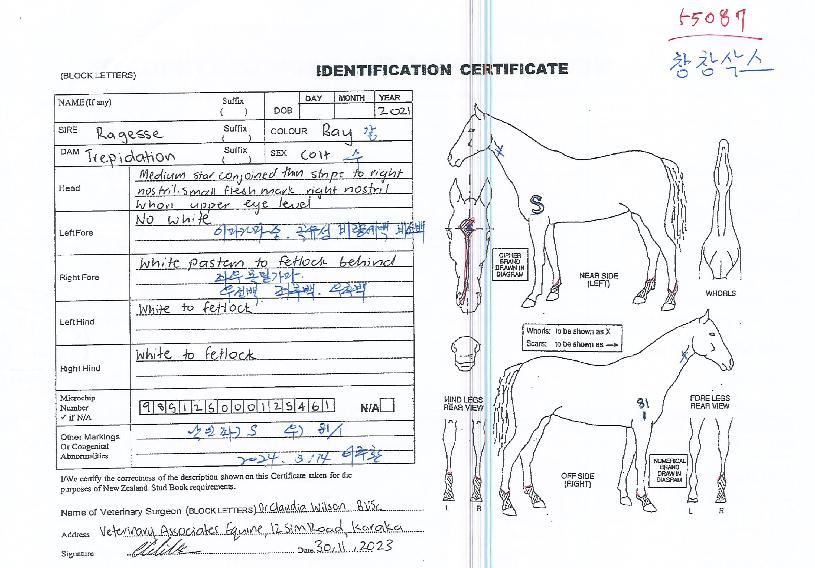 55087
창창삭스
IDENTIFICATION CERTIFICATE
(BLOCK LETTERS)
NAME (If any) Suffix ( ) DOB DAY MONTH YEAR 2021
SIRE Ragesse Suffix ( ) COLOUR Bay 갈
DAM Trepidation Suffix ( ) SEX Colt 수
Head Medium star conjoined thin stripe to right
nostril. Small flesh mark right nostril
Whorl upper eye level
Left Fore No white
Right Fore White pastern to fetlock behind
Left Hind White to fetlock
Right Hind White to fetlock
Microchip Number ✓ if N/A 985125000125461 N/A
Other Markings Or Congenital Abnormalities S 81/1
2024. 3/14
I/We certify the correctness of the description shown on this Certificate taken for the
purposes of New Zealand Stud Book requirements.
Name of Veterinary Surgeon (BLOCK LETTERS) Dr Claudia Wilson BVSc
Address Veterinary Associates Equine, 12 Sim Road, Karaka
Signature Date 30.11.2023
S
CIPHER BRAND DRAWN IN DIAGRAM
NEAR SIDE (LEFT)
WHORLS
Whorls: to be shown as X
Scars: to be shown as →
HIND LEGS REAR VIEW
L R
81
1
FORE LEGS REAR VIEW
NUMERICAL BRAND DRAWN IN DIAGRAM
OFF SIDE (RIGHT)
L R